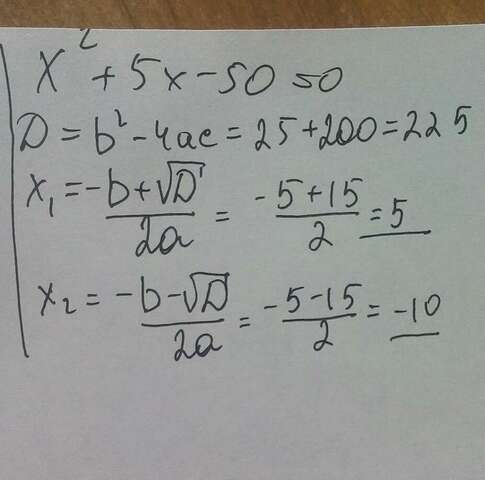 x² + 5x - 50 = 0
D = b² - 4ac = 25 + 200 = 225
x₁ = (-b + √D)/(2a) = (-5 + 15)/2 = 5
x₂ = (-b - √D)/(2a) = (-5 - 15)/2 = -10